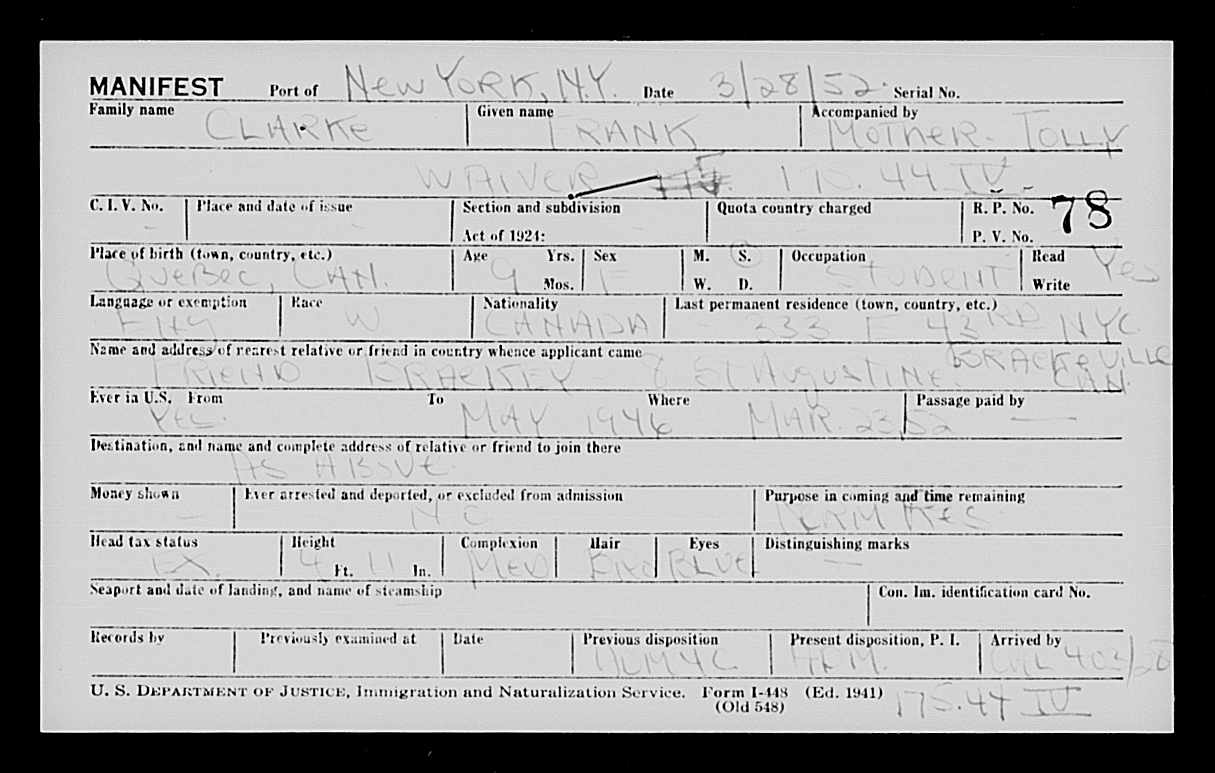 MANIFEST Port of New York, N.Y. Date 3/28/52. Serial No.
Family name Given name Accompanied by
CLARKE FRANK MOTHER - JOLLY
WAIVER 175.44 IV
C. I. V. No. Place and date of issue Section and subdivision Quota country charged R. P. No. 78
Act of 1924: P. V. No.
Place of birth (town, country, etc.) Age Yrs. Sex M. S. Occupation Read Yes
QUEBEC, CAN. 9 Mos. F W. D. STUDENT Write
Language or exemption Race Nationality Last permanent residence (town, country, etc.)
ENG W CANADA 333 E 43RD NYC
Name and address of nearest relative or friend in country whence applicant came
FRIEND BRACKEY - 8 St Augustine. CAN.
Ever in U.S. From To Where Passage paid by
Yes. MAY 1946 MAR. 23/52 —
Destination, and name and complete address of relative or friend to join there
AS ABOVE.
Money shown Ever arrested and deported, or excluded from admission Purpose in coming and time remaining
— NO PERM RES
Head tax status Height Complexion Hair Eyes Distinguishing marks
EX. 4 Ft. 11 In. MED BLUE —
Seaport and date of landing, and name of steamship Con. Im. identification card No.
Records by Previously examined at Date Previous disposition Present disposition, P. I. Arrived by
U. S. DEPARTMENT OF JUSTICE, Immigration and Naturalization Service. Form I-448 (Ed. 1941) 175.44 IV
(Old 548)